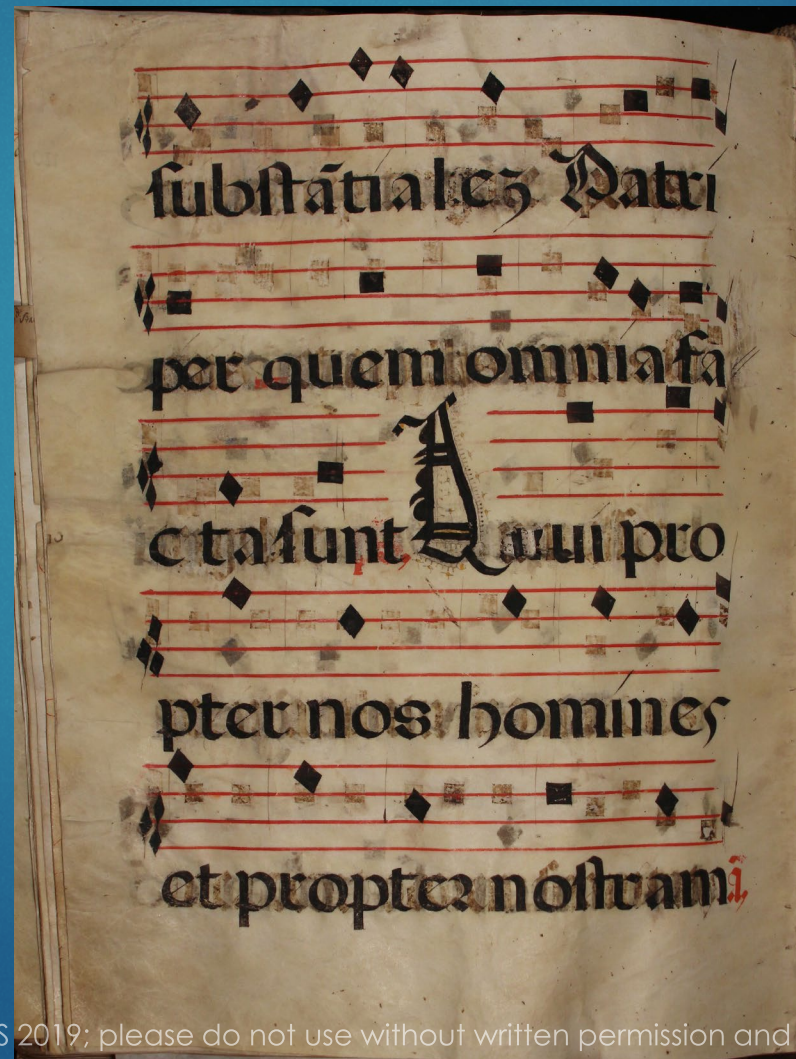 substātialeʒ Patri
per quem omnia fa
cta sunt, Qui pro
pter nos homines
et propter nostram
S 2019; please do not use without written permission and